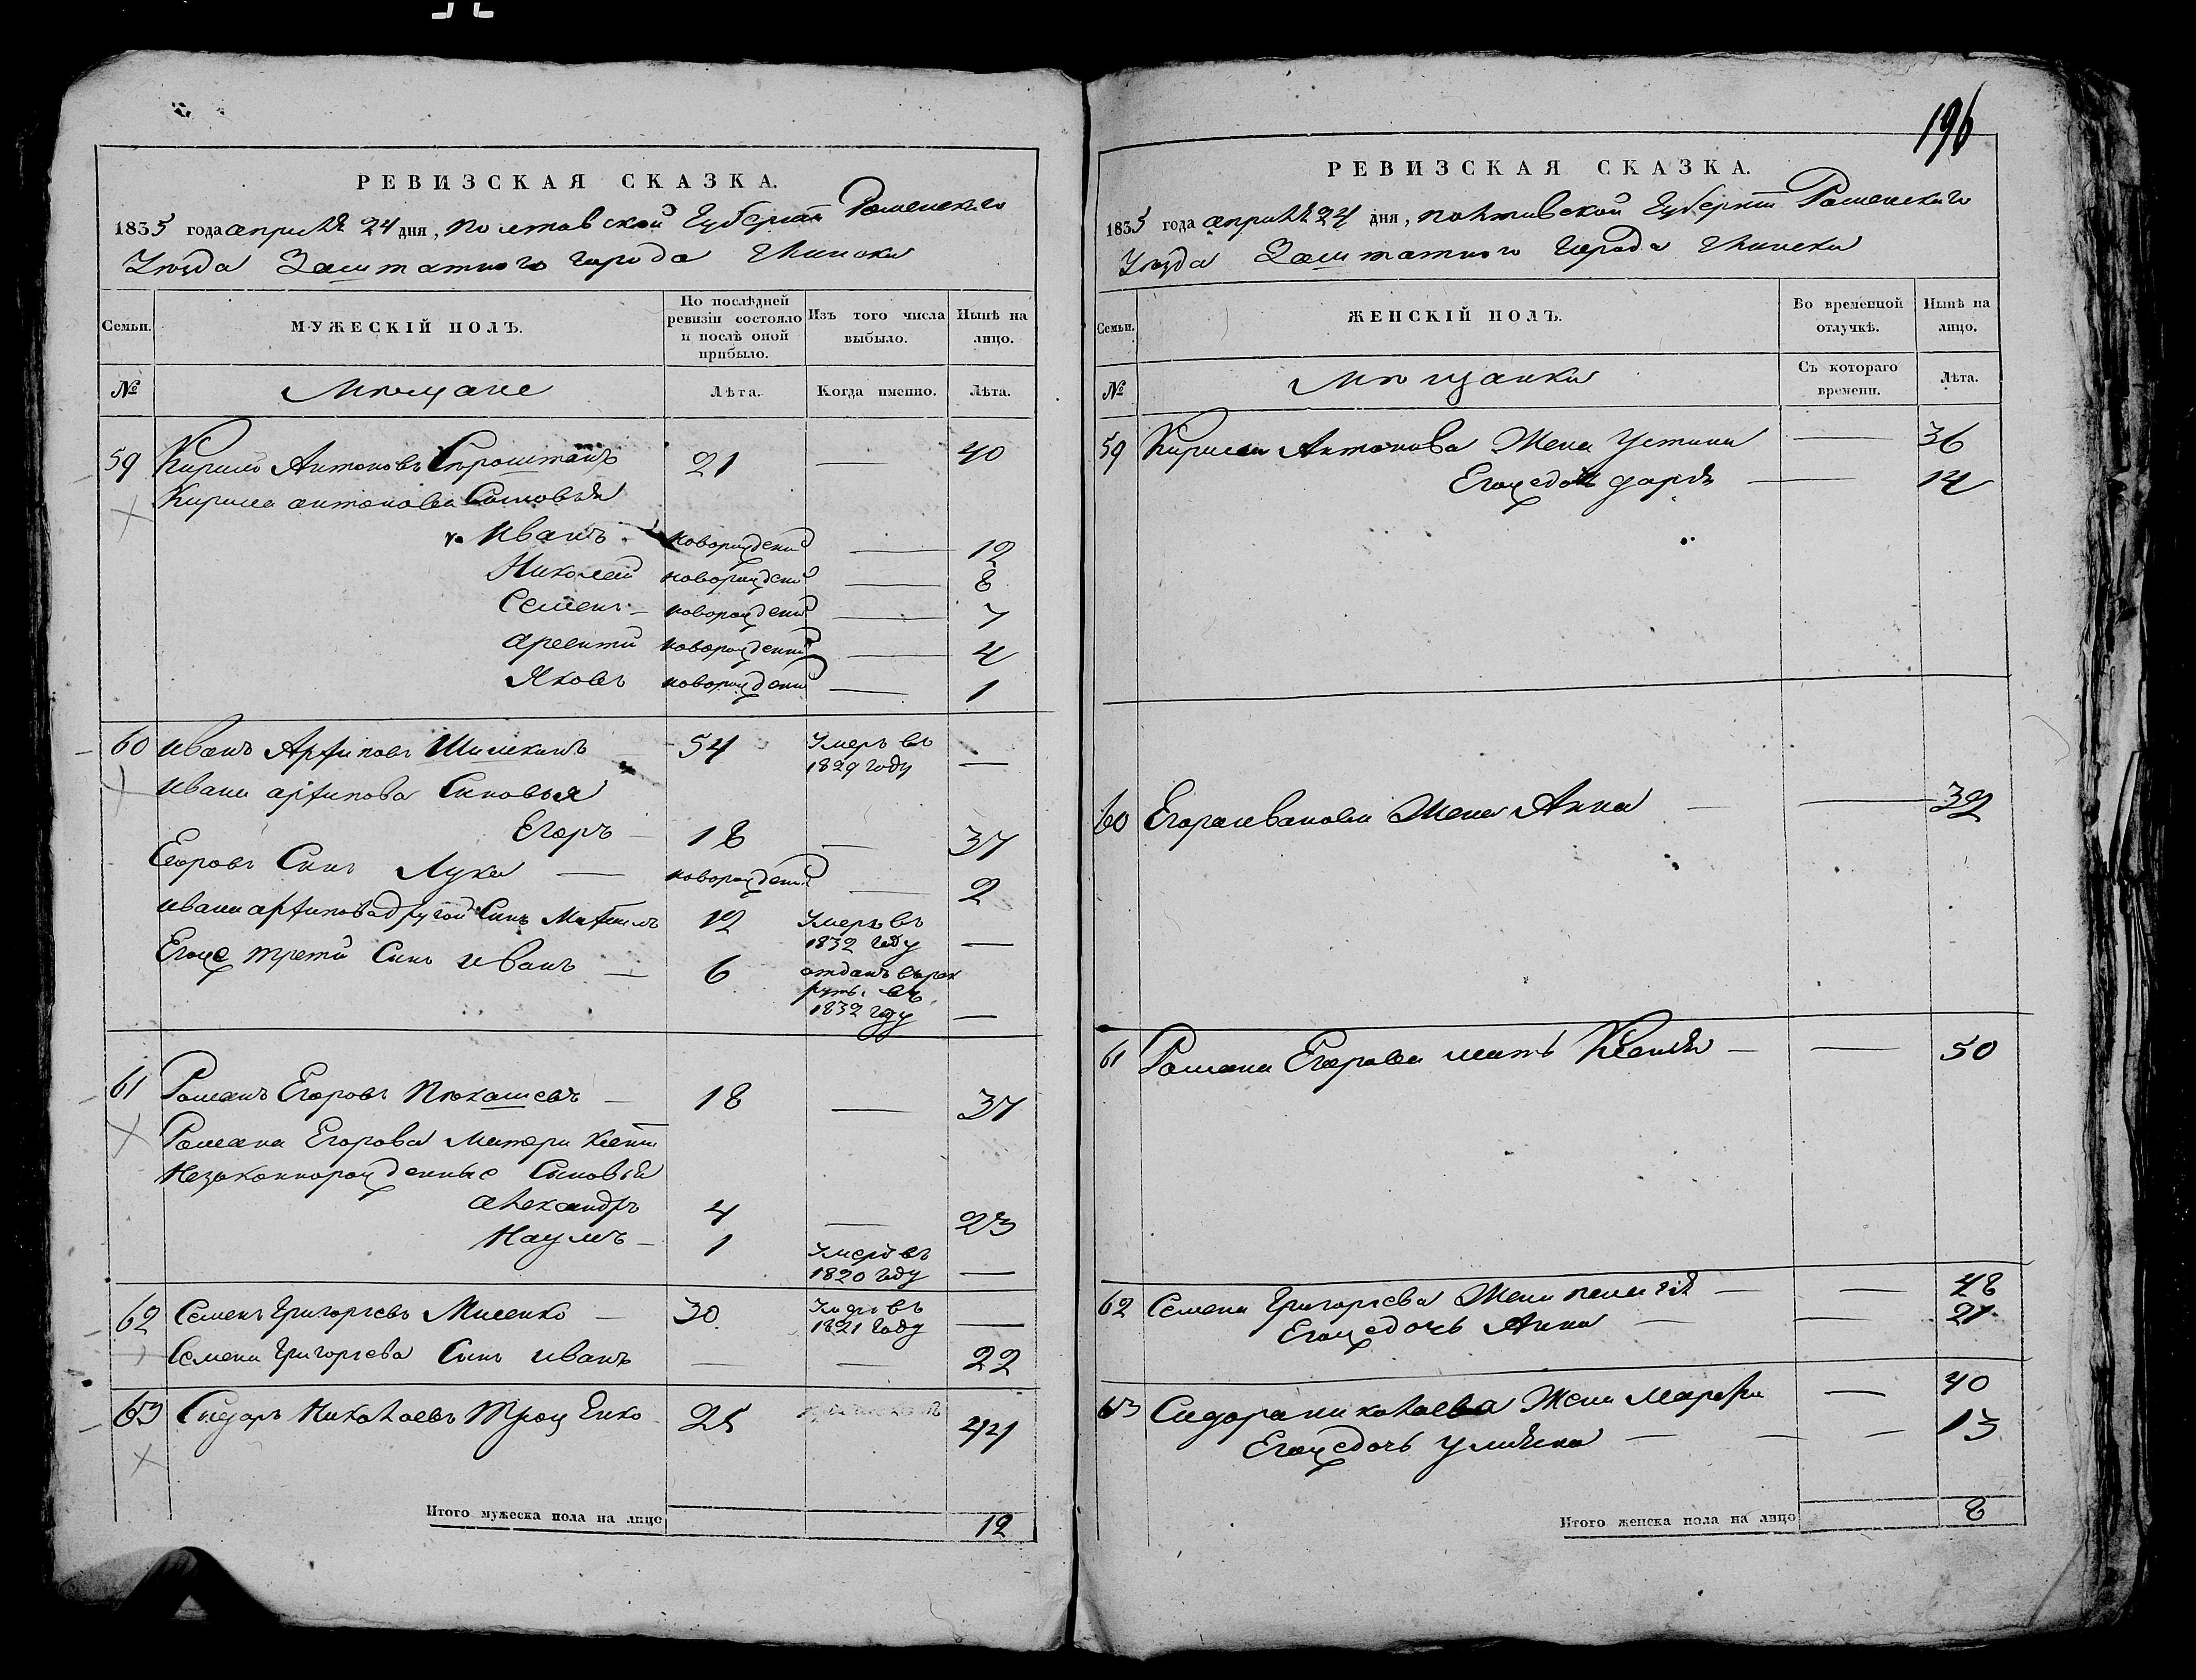 196
РЕВИЗСКАЯ СКАЗКА.
1835 года апреля 24 дня, полтавской Губернии Роменского
Уезда Заштатного города Глинска
Семьи. МУЖЕСКІЙ ПОЛЪ. По послѣдней ревизіи состояло и послѣ оной прибыло. Изъ того числа выбыло. Нынѣ на лицо.
№ Мещане Лѣта. Когда именно. Лѣта.
59 Кирило Антоновъ 21 — 40
Кирила антонова Сыновья
Иванъ новорожденный — 12
Николай новорожденный — 8
Семенъ — новорожденный — 7
арсентий новорожденный — 4
Яковъ новорожденный — 1
60 иванъ Архиповъ Шишкинъ 54 Умеръ въ 1829 году —
ивана архипова Сыновья
Егоръ — 18 — 37
Егоровъ Сынъ Лука — новорожденный — 2
ивана архипова другой Сынъ Михаилъ 12 Умеръ въ 1832 году —
Егоже третий Сынъ иванъ — 6 отданъ въ рекруты въ 1832 году —
61 Романъ Егоровъ — 18 — 37
Романа Егорова Матери Ксении
Незаконнорожденные Сыновья
александръ 4 — 23
Наумъ — 1 Умеръ въ 1820 году —
62 Семенъ Григорьевъ Мисенко — 30 Умеръ въ 1821 году —
Семена Григорьева Сынъ иванъ — — 22
63 Сидоръ Николаевъ Троценко 25 44
Итого мужеска пола на лицо 12
РЕВИЗСКАЯ СКАЗКА.
1835 года апреля 24 дня, полтавской Губернии Роменского
Уезда Заштатного города Глинска
Семьи. ЖЕНСКІЙ ПОЛЪ. Во временной отлучкѣ. Нынѣ на лицо.
№ Мещанки Съ котораго времени. Лѣта.
59 Кирила Антонова Жена Устина — 36
Егоже дочь дарья — 14
60 Егора иванова Жена Анна — — 32
61 Романа Егорова мать Ксения — — 50
62 Семена Григорьева Жена пелагея — — 48
Егоже дочь Анна — — 21
63 Сидора николаева Жена Марфа — 40
Егоже дочь улияна — — — 13
Итого женска пола на лицо 8